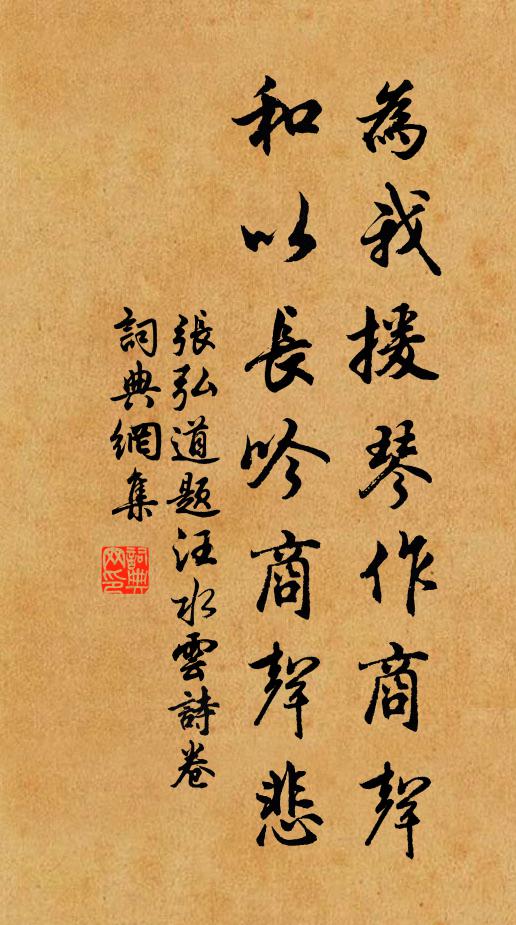 為我援琴作商聲
和以長吟商聲悲
張弘道題汪水雲詩卷
詞典網集
詞典網印